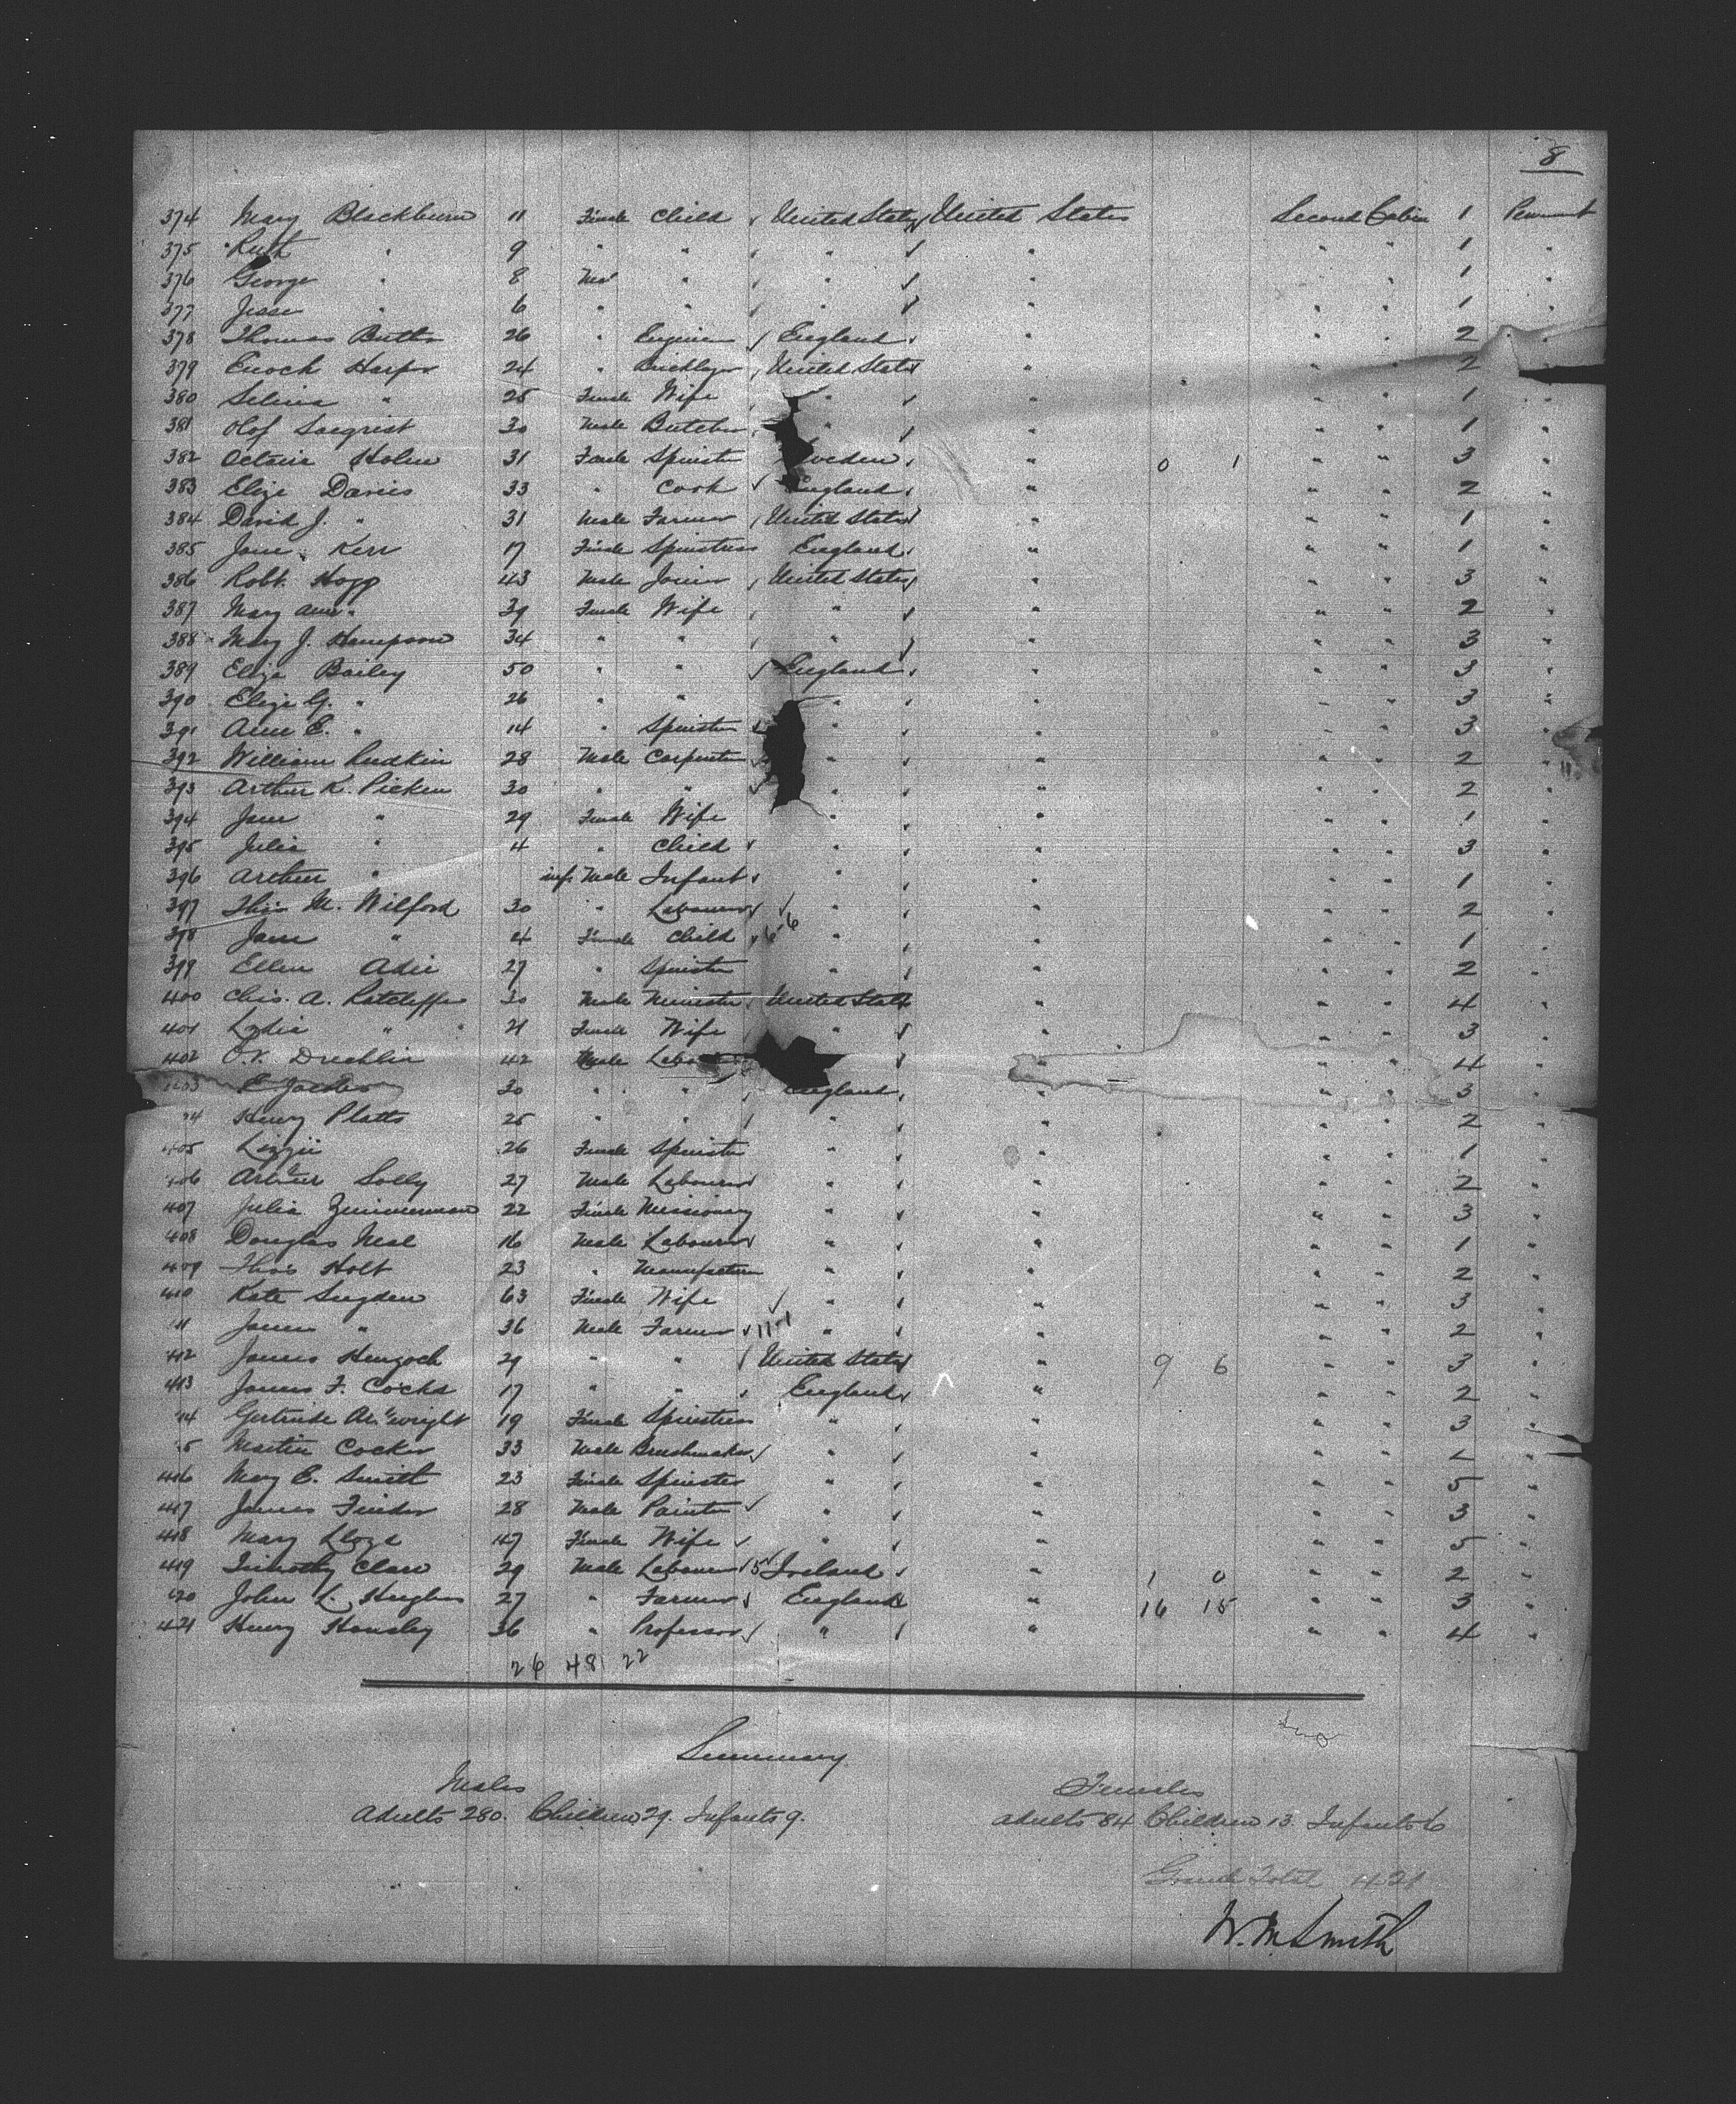 8
374 Mary Blackburn 11 Female Child United States United States Second Cabin 1 Permant
375 Ruth " 9 " " " " " " 1 "
376 George " 8 Mal " " " " " 1 "
377 Jesse " 6 " " " " " " 1 "
378 Thomas Butts 26 " Engineer England " " " 2 "
379 Enoch Harper 24 " Bricklayer United States " " " 2 "
380 Selina " 25 Female Wife " " " " 1 "
381 Olof 30 Male Butcher " " " " 1 "
382 Octavia Holm 31 Female Spinster Sweden " 0 1 " " 3 "
383 Eliza Davies 33 " Cook England " " " 2 "
384 David J. " 31 Male Farmer United States " " " 1 "
385 Jane Kerr 17 Female Spinstress England " " " 1 "
386 Robt. Hogg 43 Male Joiner United States " " " 3 "
387 Mary Ann " 39 Female Wife " " " " 2 "
388 Mary J. Hampson 34 " " " " " " 3 "
389 Eliza Bailey 50 " " England " " " 3 "
390 Eliza G. " 26 " " " " " " 3 "
391 Ann E. " 14 " Spinster " " " " 3 "
392 William Rudkin 28 Male Carpenter " " " " 2 "
393 Arthur K. Picken 30 " " " " " " 2 "
394 Jane " 29 Female Wife " " " " 1 "
395 Julia " 4 " Child " " " " 3 "
396 Arthur " inft Male Infant " " " " 1 "
397 Thos M. Wilford 30 " Labourer " " " " 2 "
398 Jane " 4 Female Child 6-6 " " " " 1 "
399 Ellen Adie 27 " Spinster " " " " 2 "
400 Chis. A. Ratcliffe 30 Male Minister United States " " " 4 "
401 Lydia " 21 Female Wife " " " " 3 "
402 O.V. Drechlin 42 Male " " " 4 "
403 E 30 " " England " " " 3 "
Henry Platts 25 " " " " " " 2 "
405 Lizzie 26 Female Spinster " " " " 1 "
406 Arthur Solly 27 Male Labourer " " " " 2 "
407 Julia Zimmerman 22 Female Missionary " " " " 3 "
408 Douglas Neal 16 Male Labourer " " " " 1 "
409 Thos Holt 23 " Manufacturer " " " " 2 "
410 Kate Sugden 63 Female Wife " " " " 3 "
11 James " 36 Male Farmer 11-1 " " " " 2 "
412 James 29 " " United States " 9 6 " " 3 "
413 James F. Cocks 17 " " England " " " 2 "
14 Gertrude Arkwright 19 Female Spinstress " " " " 3 "
5 Martin Cocker 33 Male Brushmaker " " " "
416 Mary E. Smith 23 Female Spinster " " " " 5 "
417 James Finder 28 Male Painter " " " " 3 "
418 Mary Lloyd 47 Female Wife " " " " 5 "
419 Timothy Clare 29 Male Labourer 5 Ireland " 1 0 " " 2 "
420 John L. Hughes 27 " Farmer England " 16 15 " " 3 "
421 Henry Hornsby 36 " Professor " " " " 4 "
26 48 22
Summary
Males
Females
Adults 280. Children 29. Infants 9.
Adults 84 Children 13 Infants 6
Grand Total 421
W. M. Smith